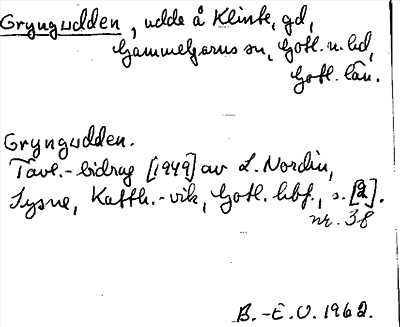 Gryngudden, udde å Klinte, gd,
Gammelgarns sn, Gotl. n. hd,
Gotl. län.
Gryngudden.
Tävl.-bidrag [1949] av L. Nordin,
Sysne, Katth.-vik, Gotl. hbf., s. [2].
nr. 38
B.-E.O. 1962.